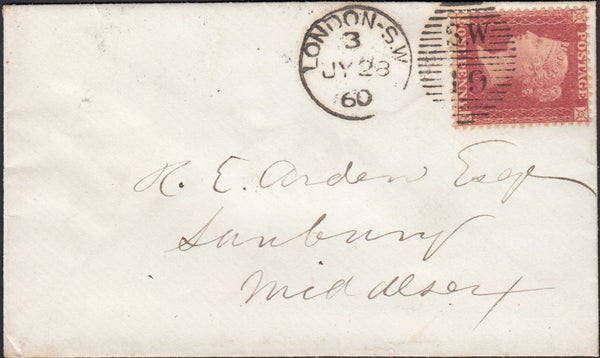 LONDON-S.W
3
JY 28
60
SW
19
POSTAGE
R. E. Arden Esqr
Sunbury
Middlesex